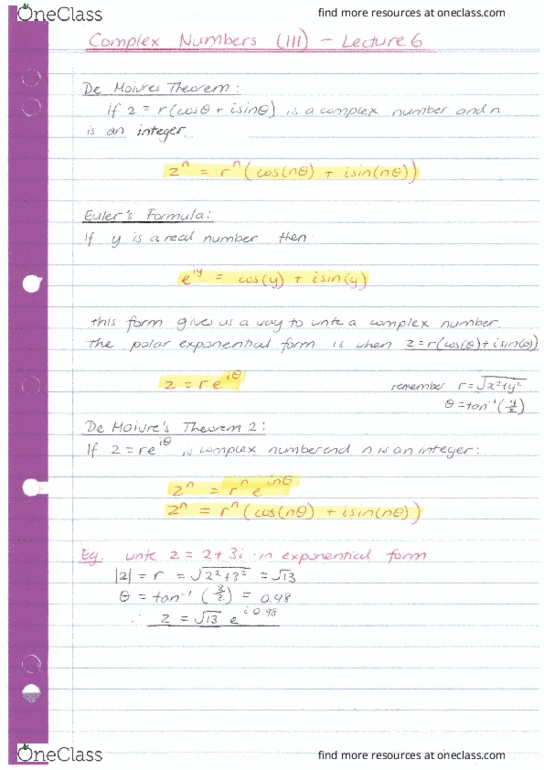 OneClass
find more resources at oneclass.com
Complex Numbers (III) - Lecture 6
De Moivres Theorem:
If z = r(cosθ + isinθ) is a complex number and n
is an integer.
zⁿ = rⁿ(cos(nθ) + isin(nθ))
Euler's Formula:
If y is a real number then
e^iy = cos(y) + isin(y)
this form gives us a way to write a complex number.
The polar exponential form is when z=r(cos(θ)+isin(θ))
z = re^iθ
remember r=√x²+y²
θ=tan⁻¹(y/x)
De Moivre's Theorem 2:
If z = re^iθ is complex number and n is an integer:
zⁿ = rⁿe^inθ
zⁿ = rⁿ(cos(nθ) + isin(nθ))
Eg. write z = 2+3i in exponential form
|z| = r = √2²+3² = √13
θ = tan⁻¹(3/2) = 0.98
∴ z = √13 e^i0.98
OneClass
find more resources at oneclass.com